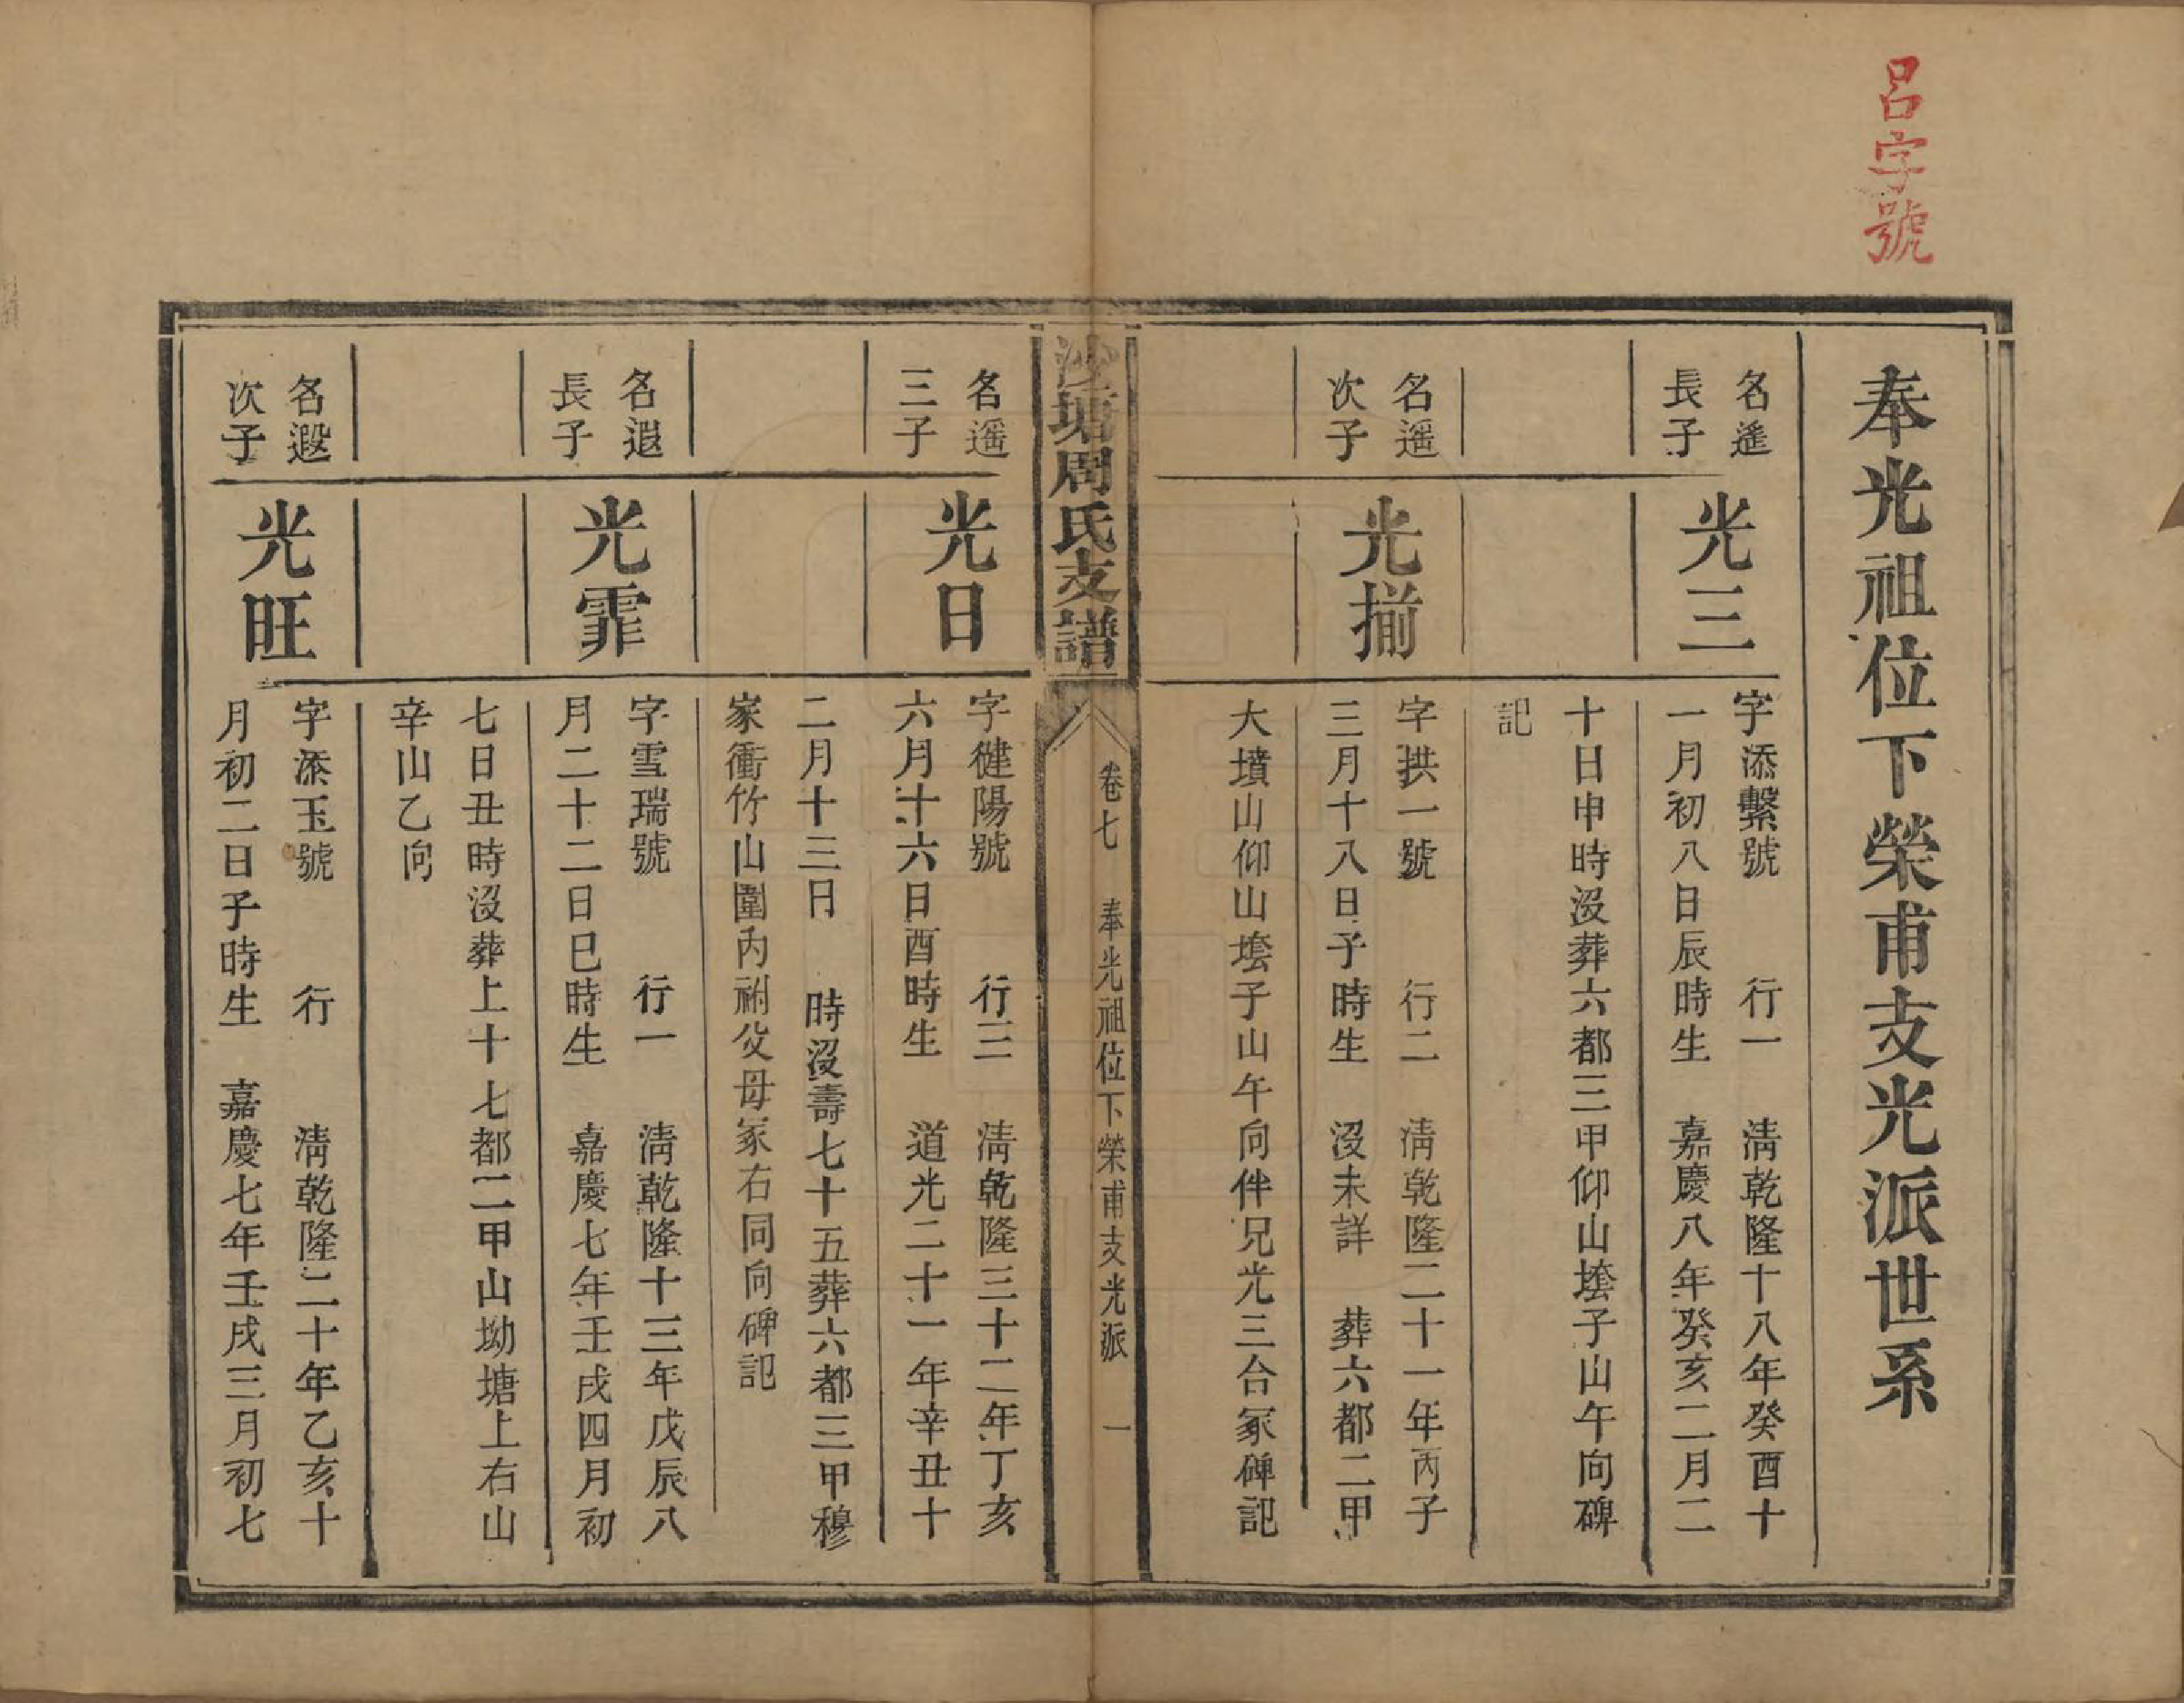 呂字號
奉光祖位下榮甫支光派世系
名遙
長子
光三
字添繫號　行一　淸乾隆十八年癸酉十
一月初八日辰時生　嘉慶八年癸亥二月二
十日申時沒葬六都三甲仰山塆子山午向碑
記
名遙
次子
光揃
字拱一號　行二　淸乾隆二十一年丙子
三月十八日子時生　沒未詳　葬六都二甲
大墳山仰山塆子山午向伴兄光三合冢碑記
沙塘周氏支譜
卷七　奉光祖位下榮甫支光派　一
名遙
三子
光日
字健陽號　行三　淸乾隆三十二年丁亥
六月十六日酉時生　道光二十一年辛丑十
二月十三日　時沒壽七十五葬六都三甲穆
家衝竹山圍內祔父母冢右同向碑記
名遐
長子
光霏
字雪瑞號　行一　淸乾隆十三年戊辰八
月二十二日巳時生　嘉慶七年壬戌四月初
七日丑時沒葬上十七都二甲山坳塘上右山
辛山乙向
名遐
次子
光旺
字添玉號　行　淸乾隆二十年乙亥十
月初二日子時生　嘉慶七年壬戌三月初七